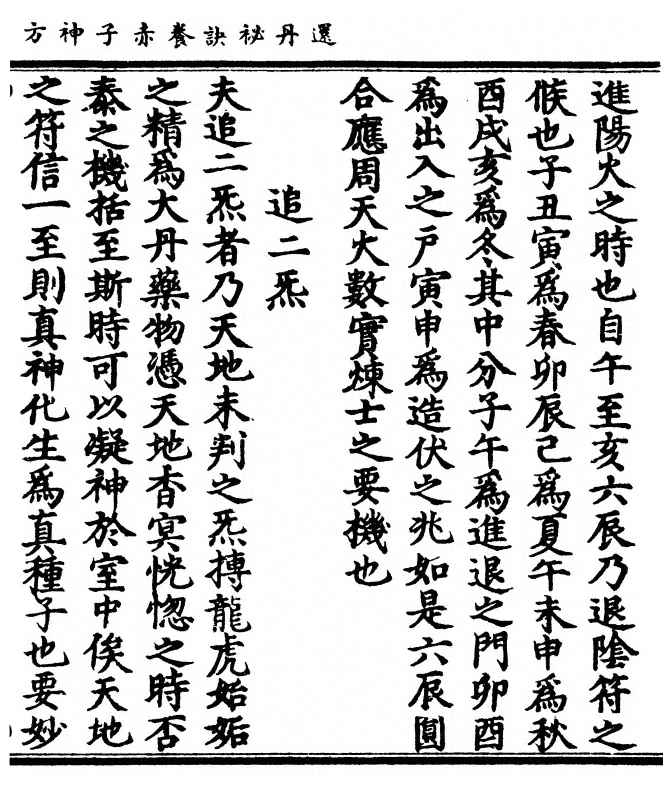 還丹祕訣養赤子神方
進陽火之時也自午至亥六辰乃退陰符之
候也子丑寅爲春卯辰巳爲夏午未申爲秋
酉戌亥爲冬其中分子午爲進退之門卯酉
爲出入之户寅申爲造伏之兆如是六辰圓
合應周天火數實煉士之要機也
追二炁
夫追二炁者乃天地未判之炁摶龍虎始姤
之精爲大丹藥物憑天地杳冥恍惚之時否
泰之機括至斯時可以凝神於室中俟天地
之符信一至則真神化生爲真種子也要妙